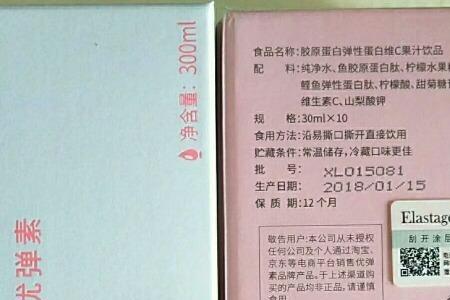 净含量：300ml
优弹素
食品名称：胶原蛋白弹性蛋白维C果汁饮品
配　　料：纯净水、鱼胶原蛋白肽、柠檬水果
鲣鱼弹性蛋白肽、柠檬酸、甜菊糖
维生素C、山梨酸钾
规　　格：30ml×10
食用方法：沿易撕口撕开直接饮用
贮藏条件：常温储存，冷藏口味更佳
批　　号：XL015081
生产日期：2018/01/15
保 质 期：12个月
敬告用户：本公司从未授权
任何公司及个人通过淘宝、
京东等电商平台销售优弹
素品牌产品。于上述渠道购
买的产品均非正品，请谨慎
食用。
Elastage
刮开涂层